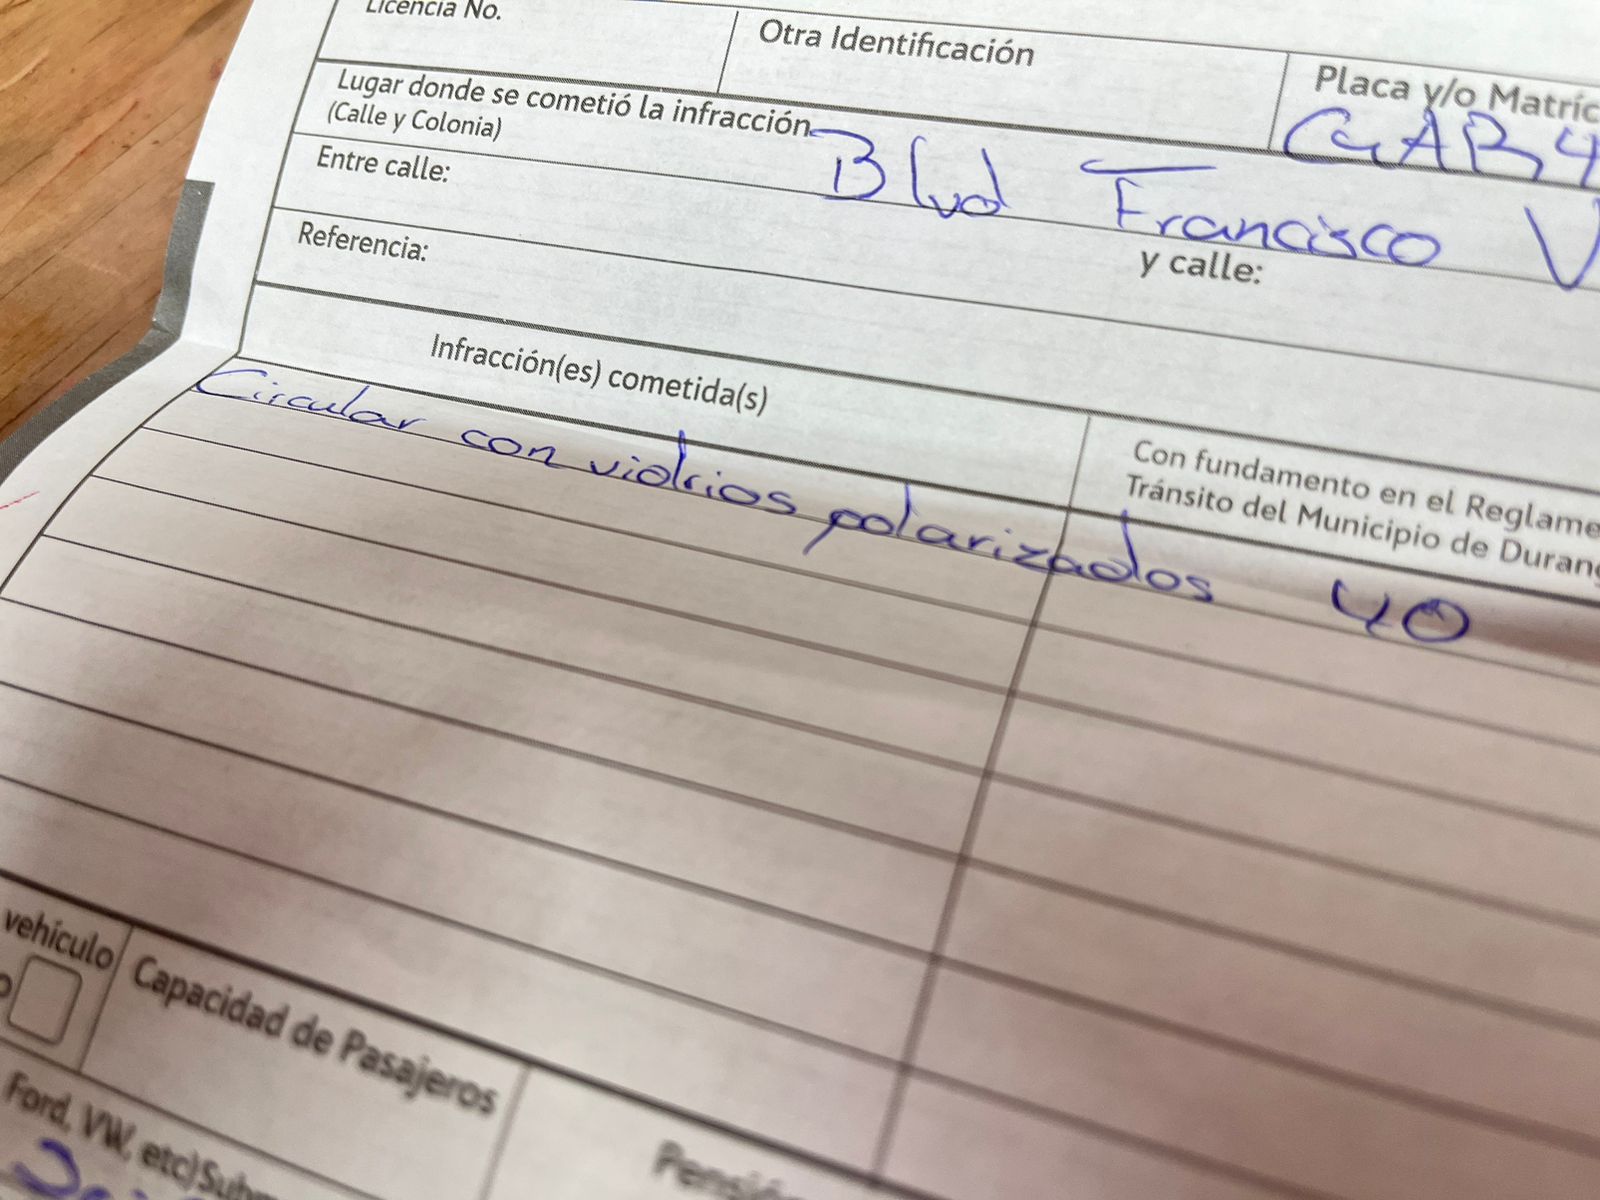 Licencia No.
Otra Identificación
Placa y/o Matríc
GAB4
Lugar donde se cometió la infracción
(Calle y Colonia)
Blvd Francisco V
Entre calle:
y calle:
Referencia:
Infracción(es) cometida(s)
Con fundamento en el Reglame
Tránsito del Municipio de Durang
Circular con vidrios polarizados 40
vehículo
Capacidad de Pasajeros
Ford, VW, etc)
Pensió